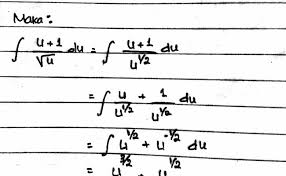 Maka:
∫ (u+1)/√u du = ∫ (u+1)/u^(1/2) du
= ∫ u/u^(1/2) + 1/u^(1/2) du
= ∫ u^(1/2) + u^(-1/2) du
= u^(3/2) + u^(1/2)